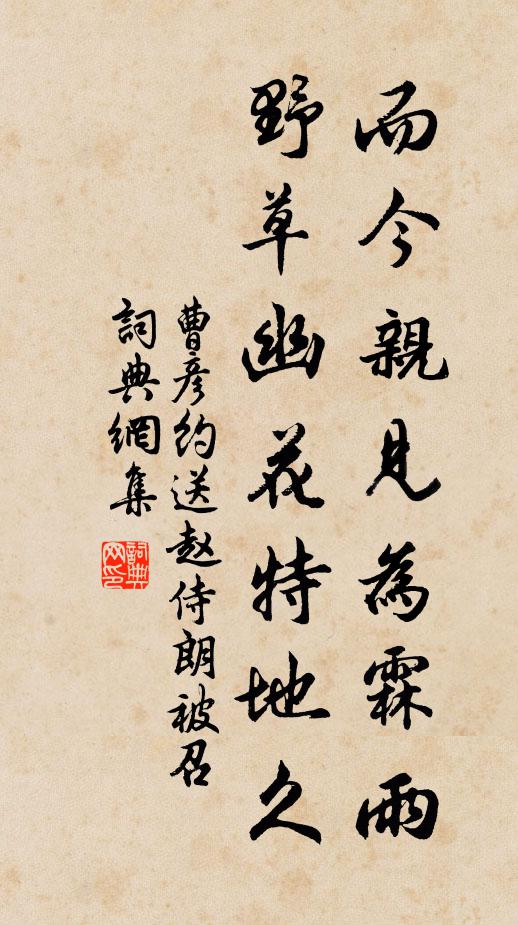 而今親見為霖雨
野草幽花特地久
曹彦約送赵侍朗被召
詞典網集
詞典网印